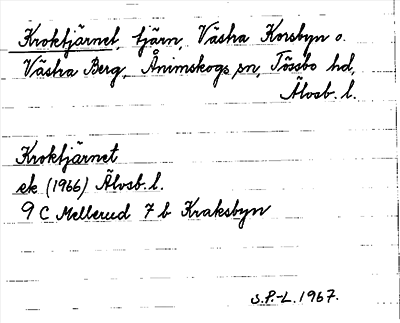 Kroktjärnet, tjärn, Västra Korsbyn o.
Västra Berg, Ånimskogs sn, Tössbo hd,
Älvsb. l.
Kroktjärnet
ek (1966) Älvsb. l.
9 C Mellerud 7 b Kraksbyn
S.P.-L. 1967.